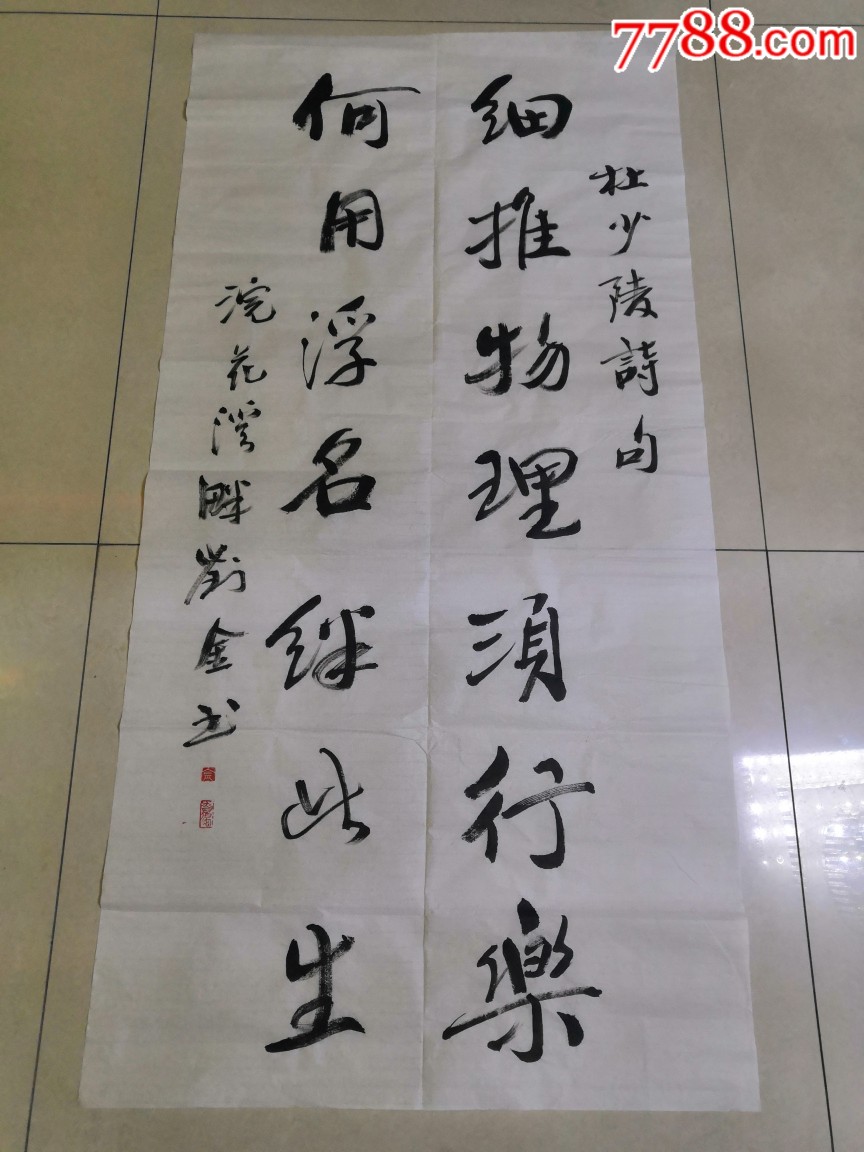 7788.com
杜少陵詩句
细推物理須行樂
何用浮名绊此生
浣花溪畔劉金书